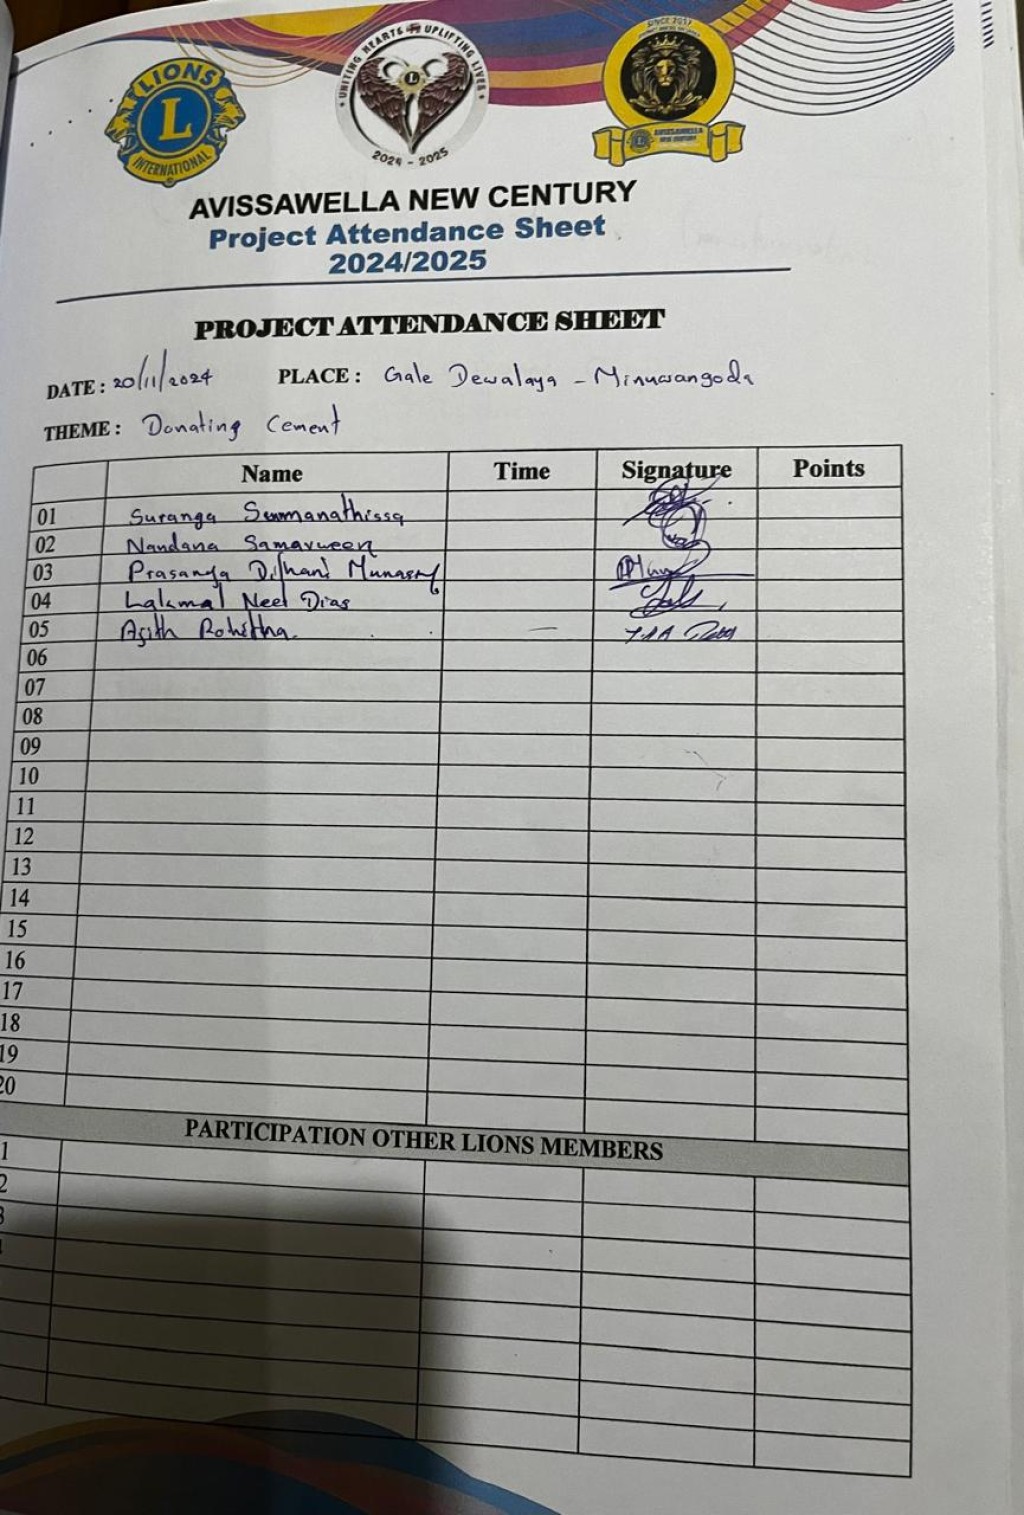 LIONS
L
INTERNATIONAL
UNITING HEARTS UPLIFTING LIVES
L
2024 - 2025
SINCE 2017
AVISSAWELLA
NEW CENTURY
AVISSAWELLA NEW CENTURY
Project Attendance Sheet
2024/2025
PROJECT ATTENDANCE SHEET
DATE : 20/11/2024 PLACE : Gale Dewalaya - Minuwangoda
THEME : Donating Cement
Name Time Signature Points
01 Suranga Summanathissa
02 Nandana Samaraween
03 Prasanga Dilhani
04 Lakmal Neel Dias
05 Ajith Rohitha. —
06
07
08
09
10
11
12
13
14
15
16
17
18
19
20
PARTICIPATION OTHER LIONS MEMBERS
1
2
3